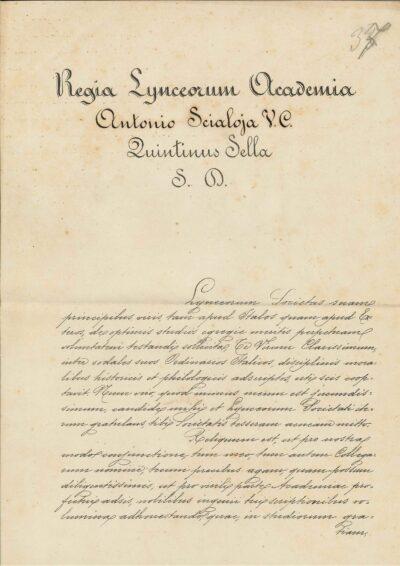 37
Regia Lynceorum Academia
Antonio Scialoja V.C.
Quintinus Sella
S. D.
Lynceorum Societas suam
principibus viris tam apud Italos quam apud Ex
teros, de optimis studiis egregie meritis perpetuam
voluntatem testandi sollicita, Te Virum Clarissimum,
inter sodales suos Ordinarios Italicos, disciplinis mora
libus historicis et philologicis adscriptos, uti scis coop
tavit. Nunc vero, quod munus omnium est jucundis
simum, candide mihi et Lynceorum Societati
rum gratulans tibi Societatis tesseram aeneam mitto.
Reliquum est, ut pro nostra
conjunctione, tum meo, tum autem Collega
rum nomine, tecum precibus agam quam possum
diligentissimis, ut pro virili parte Academiae pro
adsis, nobilibus ingenii tui scriptionibus vo
lumina adhonestando, quae, in studiorum gra
tiam,